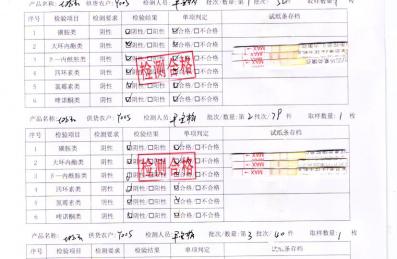 供货农户: Y005 检测人员: 批次/数量: 第1批次/ 取样数量: 1 枚
序号 检验项目 检测要求 检验结果 单项判定 试纸条存档
1 磺胺类 阴性 ☑阴性/☐阳性 ☑合格/☐不合格
2 大环内酯类 阴性 ☑阴性/☐阳性 ☑合格/☐不合格
3 β-内酰胺类 阴性 ☑阴性/☐阳性 ☑合格/☐不合格
4 四环素类 阴性 ☑阴性/☐阳性 ☑合格/☐不合格
5 氯霉素类 阴性 ☑阴性/☐阳性 ☑合格/☐不合格
6 喹诺酮类 阴性 ☑阴性/☐阳性 ☑合格/☐不合格
检测合格
MAX
产品名称: 供货农户: Y005 检测人员: 批次/数量: 第2批次/79 取样数量: 1 枚
序号 检验项目 检测要求 检验结果 单项判定 试纸条存档
1 磺胺类 阴性 ☑阴性/☐阳性 ☑合格/☐不合格
2 大环内酯类 阴性 ☑阴性/☐阳性 ☑合格/☐不合格
3 β-内酰胺类 阴性 ☑阴性/☐阳性 ☑合格/☐不合格
4 四环素类 阴性 ☑阴性/☐阳性 ☑合格/☐不合格
5 氯霉素类 阴性 ☑阴性/☐阳性 ☑合格/☐不合格
6 喹诺酮类 阴性 ☑阴性/☐阳性 ☑合格/☐不合格
检测合格
MAX
产品名称: 供货农户: Y005 检测人员: 批次/数量: 第3批次/40件 取样数量: 1 枚
序号 检验项目 检测要求 检验结果 单项判定 试纸条存档